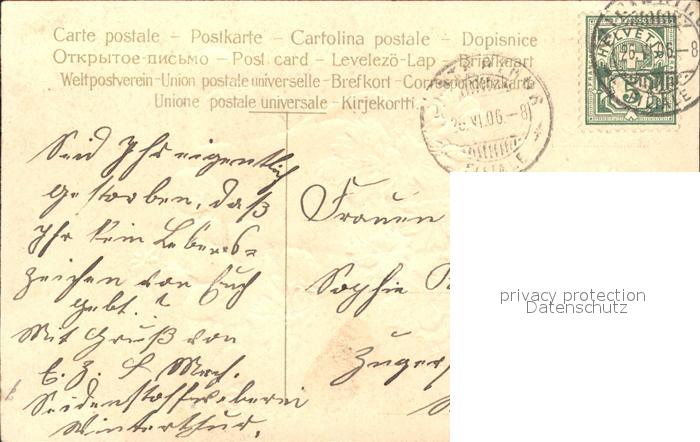 Carte postale – Postkarte – Cartolina postale – Dopisnice
Открытое письмо – Post card – Levelező-Lap – Briefkaart
Weltpostverein-Union postale universelle-Brefkort-Correspondenzkarte
Unione postale universale – Kirjekortti.
HELVETIA
26.VI.06.–8
26.VI.06.–8
Seid Ihr eigentlich
gestorben, daß
Ihr kein Lebens=
zeichen von Euch
gebt.?
Mit Gruß von
E. Z.
Seidenstoffweberei
Winterthur.
Frauen
Sophie
privacy protection
Datenschutz